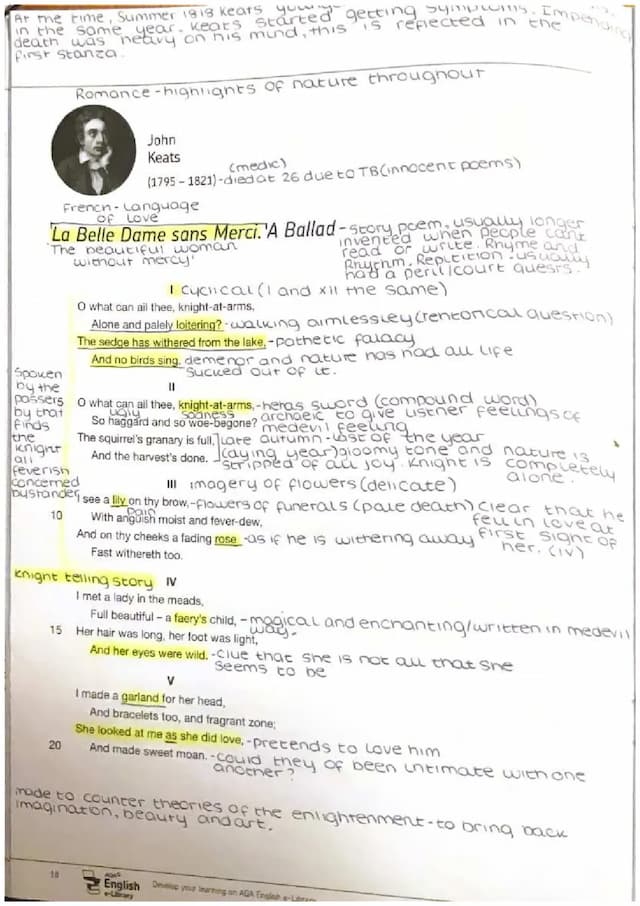 At the time, Summer 1819 Keats
in the same year. Keats started getting symptoms. Impending
death was heavy on his mind, this is reflected in the
first stanza.
Romance - highlights of nature throughout
John
Keats
(medic)
(1795 – 1821) - died at 26 due to TB (innocent poems)
French - Language
of love
'La Belle Dame sans Merci.' A Ballad - story poem, usually longer
'The beautiful woman
without mercy'
invented when people cant
read or write. Rhyme and
Rhythm. Repitition - usually
had a peril/court quests.
I cyclical (I and XII the same)
O what can ail thee, knight-at-arms,
Alone and palely loitering? - walking aimlessley (rentorical question)
The sedge has withered from the lake, - pathetic falacy
And no birds sing. demenor and nature has had all life
sucked out of it.
II
Spoken
by the
passers
by that
finds
the
knight
all
feverish
concerned
bystander
O what can ail thee, knight-at-arms, - heras sword (compound word)
ugly sadness archaeic to give listner feelings of
So haggard and so woe-begone? medevil feeling
The squirrel's granary is full, late autumn - last of the year
And the harvest's done. (dying year) gloomy tone and nature is
stripped of all joy. Knight is completely
alone.
III imagery of flowers (delicate)
I see a lily on thy brow, - flowers of funerals (pale death) clear that he
pain
fell in love at
10 With anguish moist and fever-dew,
first sight of
And on thy cheeks a fading rose - as if he is withering away
her. (IV)
Fast withereth too.
Knight telling story IV
I met a lady in the meads,
Full beautiful – a faery's child, - magical and enchanting/written in medevil
way.
15 Her hair was long, her foot was light,
And her eyes were wild. - clue that she is not all that she
seems to be
V
I made a garland for her head,
And bracelets too, and fragrant zone;
She looked at me as she did love, - pretends to love him
20 And made sweet moan. - could they of been intimate with one
another?
made to counter theories of the enlightenment - to bring back
imagination, beauty and art.
18
AQA
English
e-Library
Develop your learning on AQA English e-Library